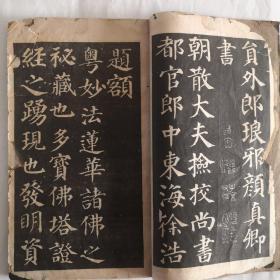 貟外郎琅邪顔真卿
書
朝散大夫撿挍尚書
都官郎中東海徐浩
題額
粵妙法蓮華諸佛之
祕藏也多寶佛塔證
經之踴現也發明資